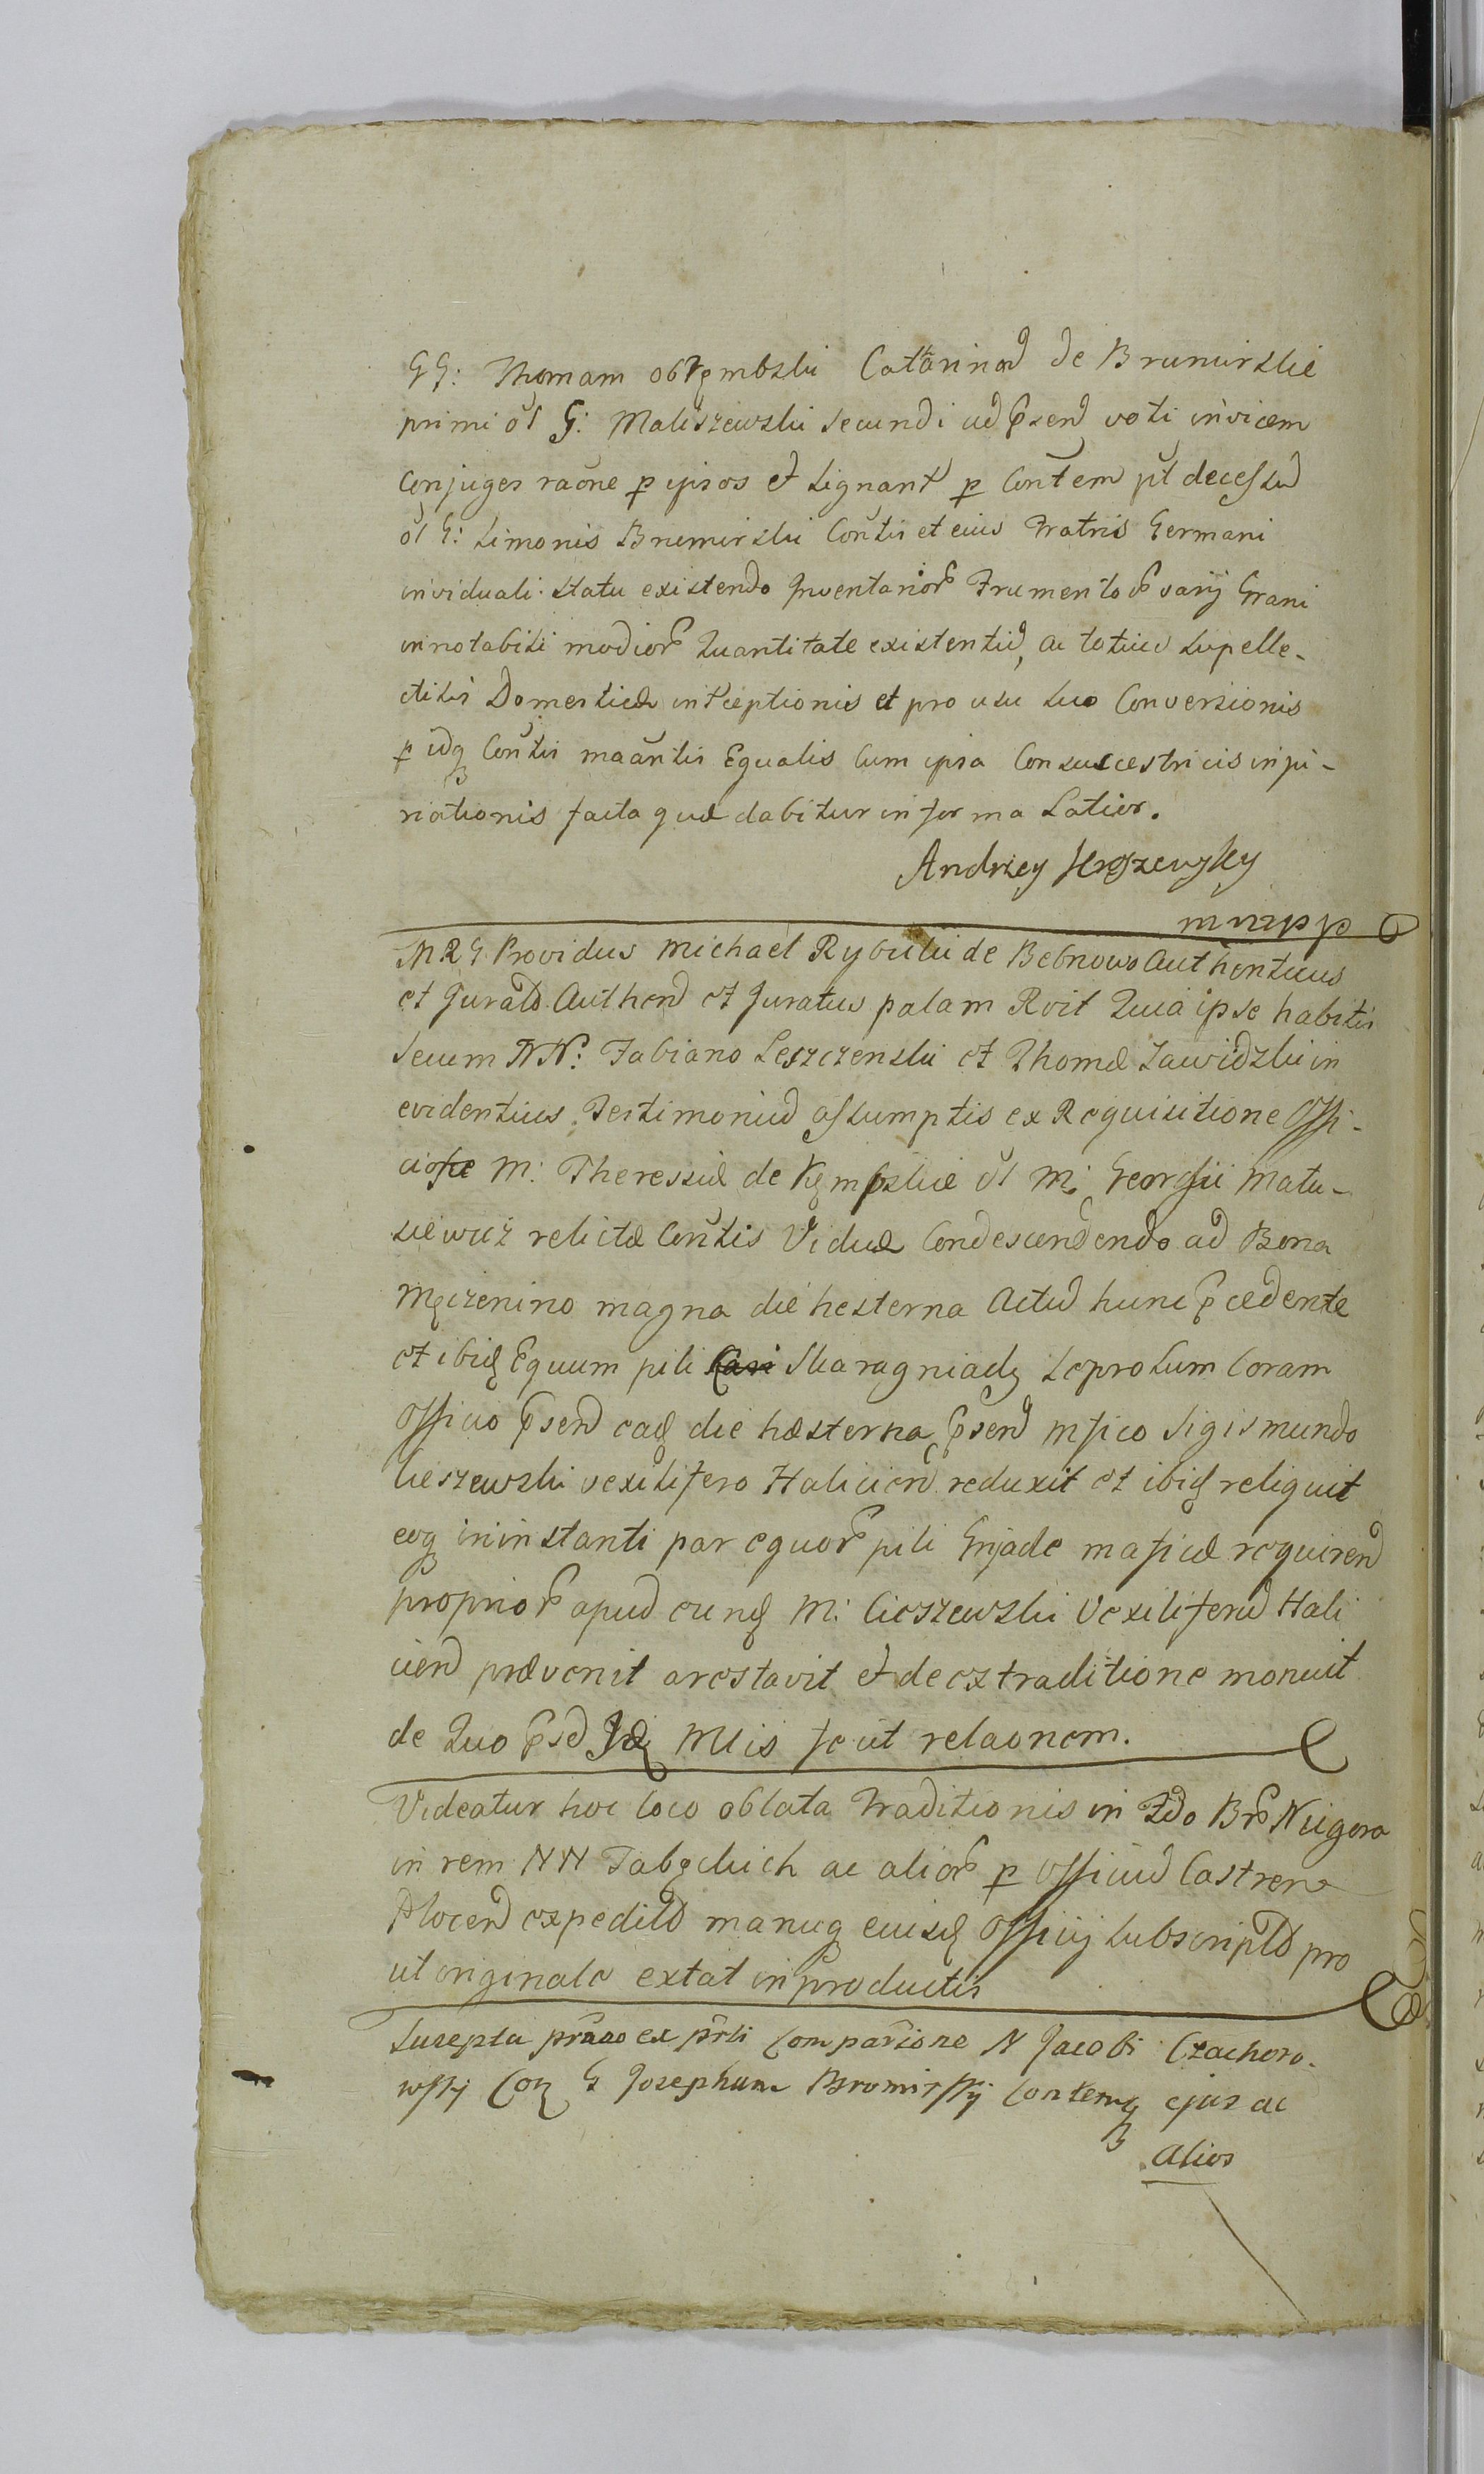 GG: Thomam obRębski Catarinā de Brumirskie
primi ol G: Maliszewski secundi ad psen voti invicem
Conjuges raone p ipsos et signant p Contem pt decessu
ol G: Simonis Brumirski Contis et eius Fratris Germani
in viduali statu existendo Inventarior Frumentor varij Grani
in notabili modior Quantitate existentiu, ac totius Supelle-
ctilis Domesticæ intceptionis et pro usu suo Conversionis
p idq Contis maantis Equalis Cum ipsa Consuccestricis inpi-
niationis facta quæ dabitur in forma Latior.
Andrzey
mnzpp
MRG Providus Michael Rybicki de Bebnowo Authenticus
et Jurato Authen et Juratus palam Rvit Quia ipse habitis
secum NN: Fabiano Leszczenski et Thomæ Zawidzki in
evidentius Testimoniu assumptis ex Requisitione Offi-
ciose M: Theressiæ de Kępskie ol M: Georgii Matu-
siewicz relictæ Contis Viduæ Condescendendo ad Bona
Męczenino magna die hesterna Actu hunc pcedente
et ibid Equum pili Skaragniady Leprosum Coram
Officio psen ead die hæsterna psen Mfico Sigismundo
Cieszewski vexilifero Halicien reduxit et ibid reliquit
eoq in instanti par equor pili Gnjade maficæ requiren
proprior apud eund M: Cieszewski Vexiliferu Hali
cien prævenit arestavit et de extraditione monuit
de Quo psd Id Mtis fecit relaonem.
Videatur hoc loco oblata Traditionis in fdo Br Nicgora
in rem NN Fabęckich ac alior p officiu Castren
Plocen expedito manuq eiusd Officij Subscripto pro
ut originale extat in productis
Suscepta ex Comparione N Jacobi Czachoro-
wskj Con G Josephum Bromirskj Contemq ejus ac
alios